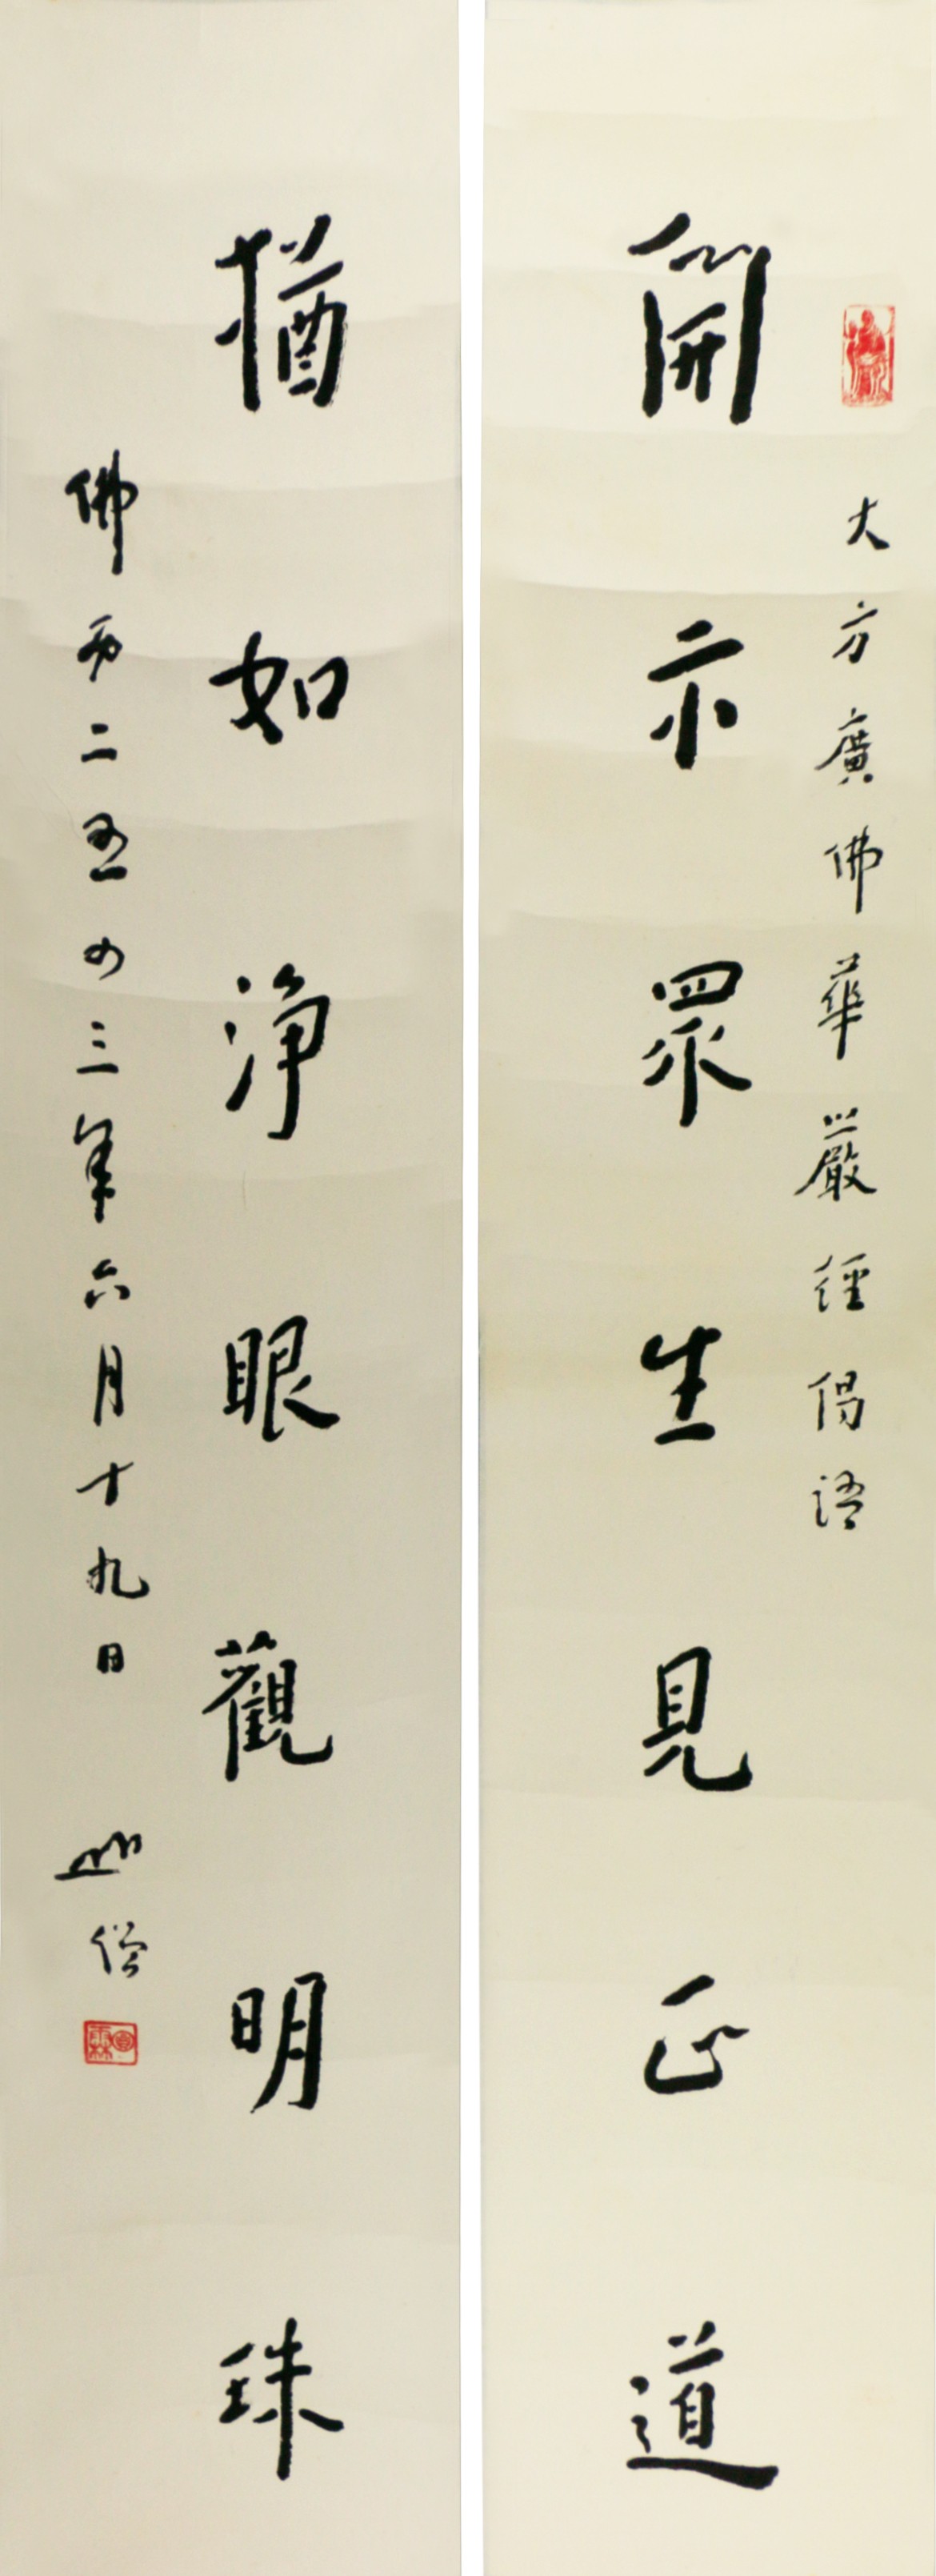 大方廣佛華嚴經偈語
開示眾生見正道
猶如淨眼觀明珠
佛历二五四三年六月十九日
僧
圓霖